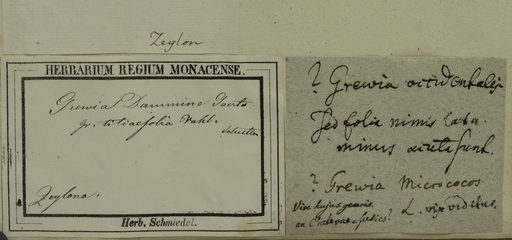 Zeylon
HERBARIUM REGIUM MONACENSE.
Grewia Dammine Gaertn
gr. tiliaefolia Vahl.
Zeylona.
Herb. Schmiedel.
? Grewia occidentalis
sed folia nimis lata
minus acuta sunt.
? Grewia Micrococos
L. vix videtur.
Vix hujus generis
an Crataevae species?